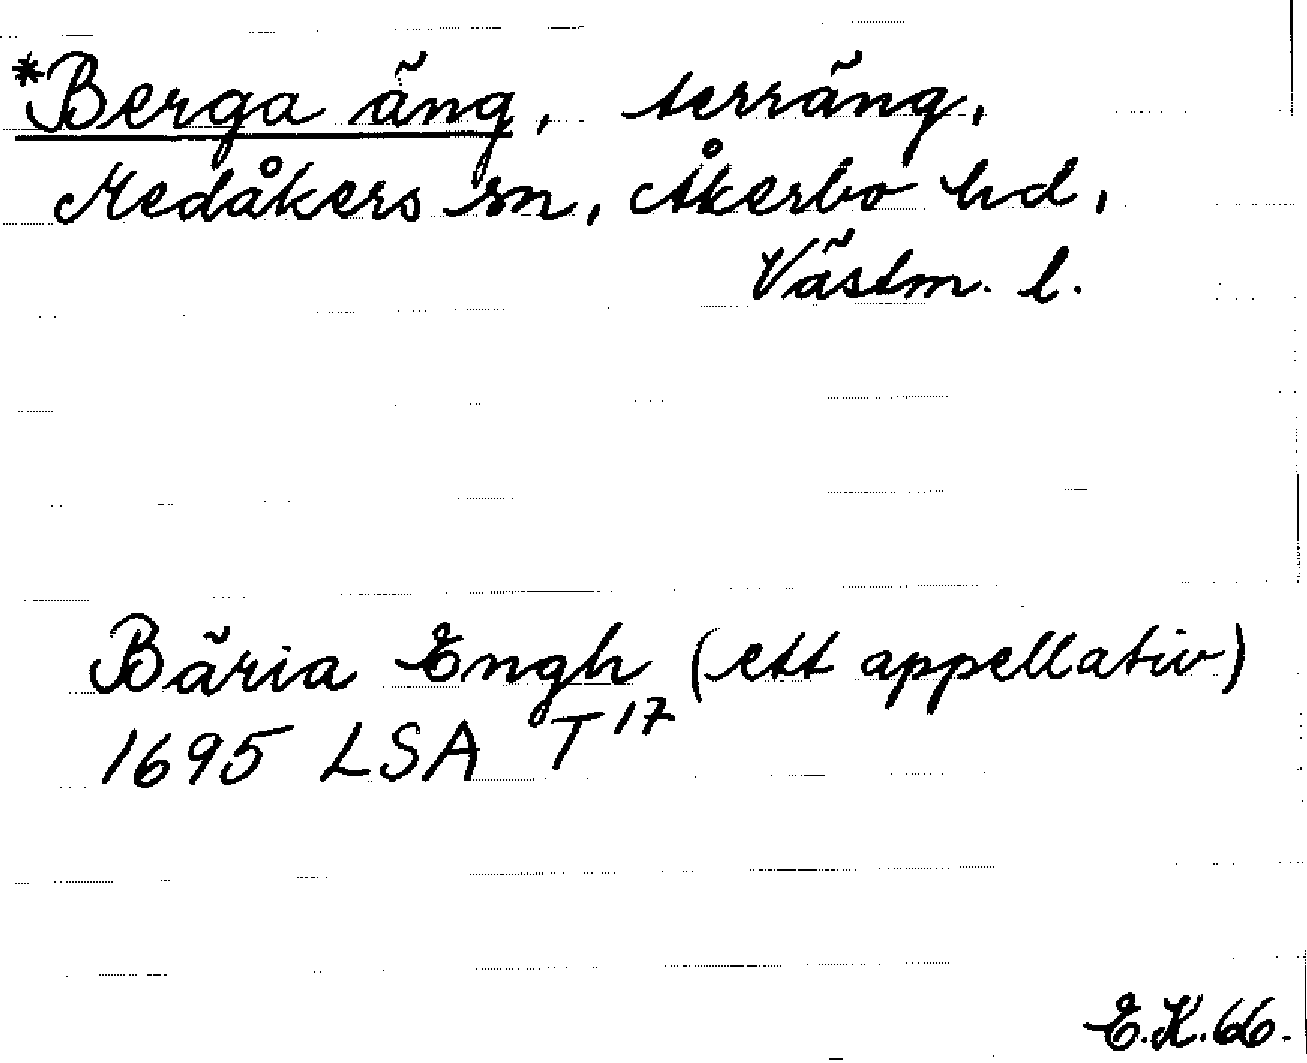 *Berga äng, terräng,
Medåkers sn, Åkerbo hd,
Västm. l.
Bäria Engh (ett appellativ)
1695 LSA T 17
E.K. 66.